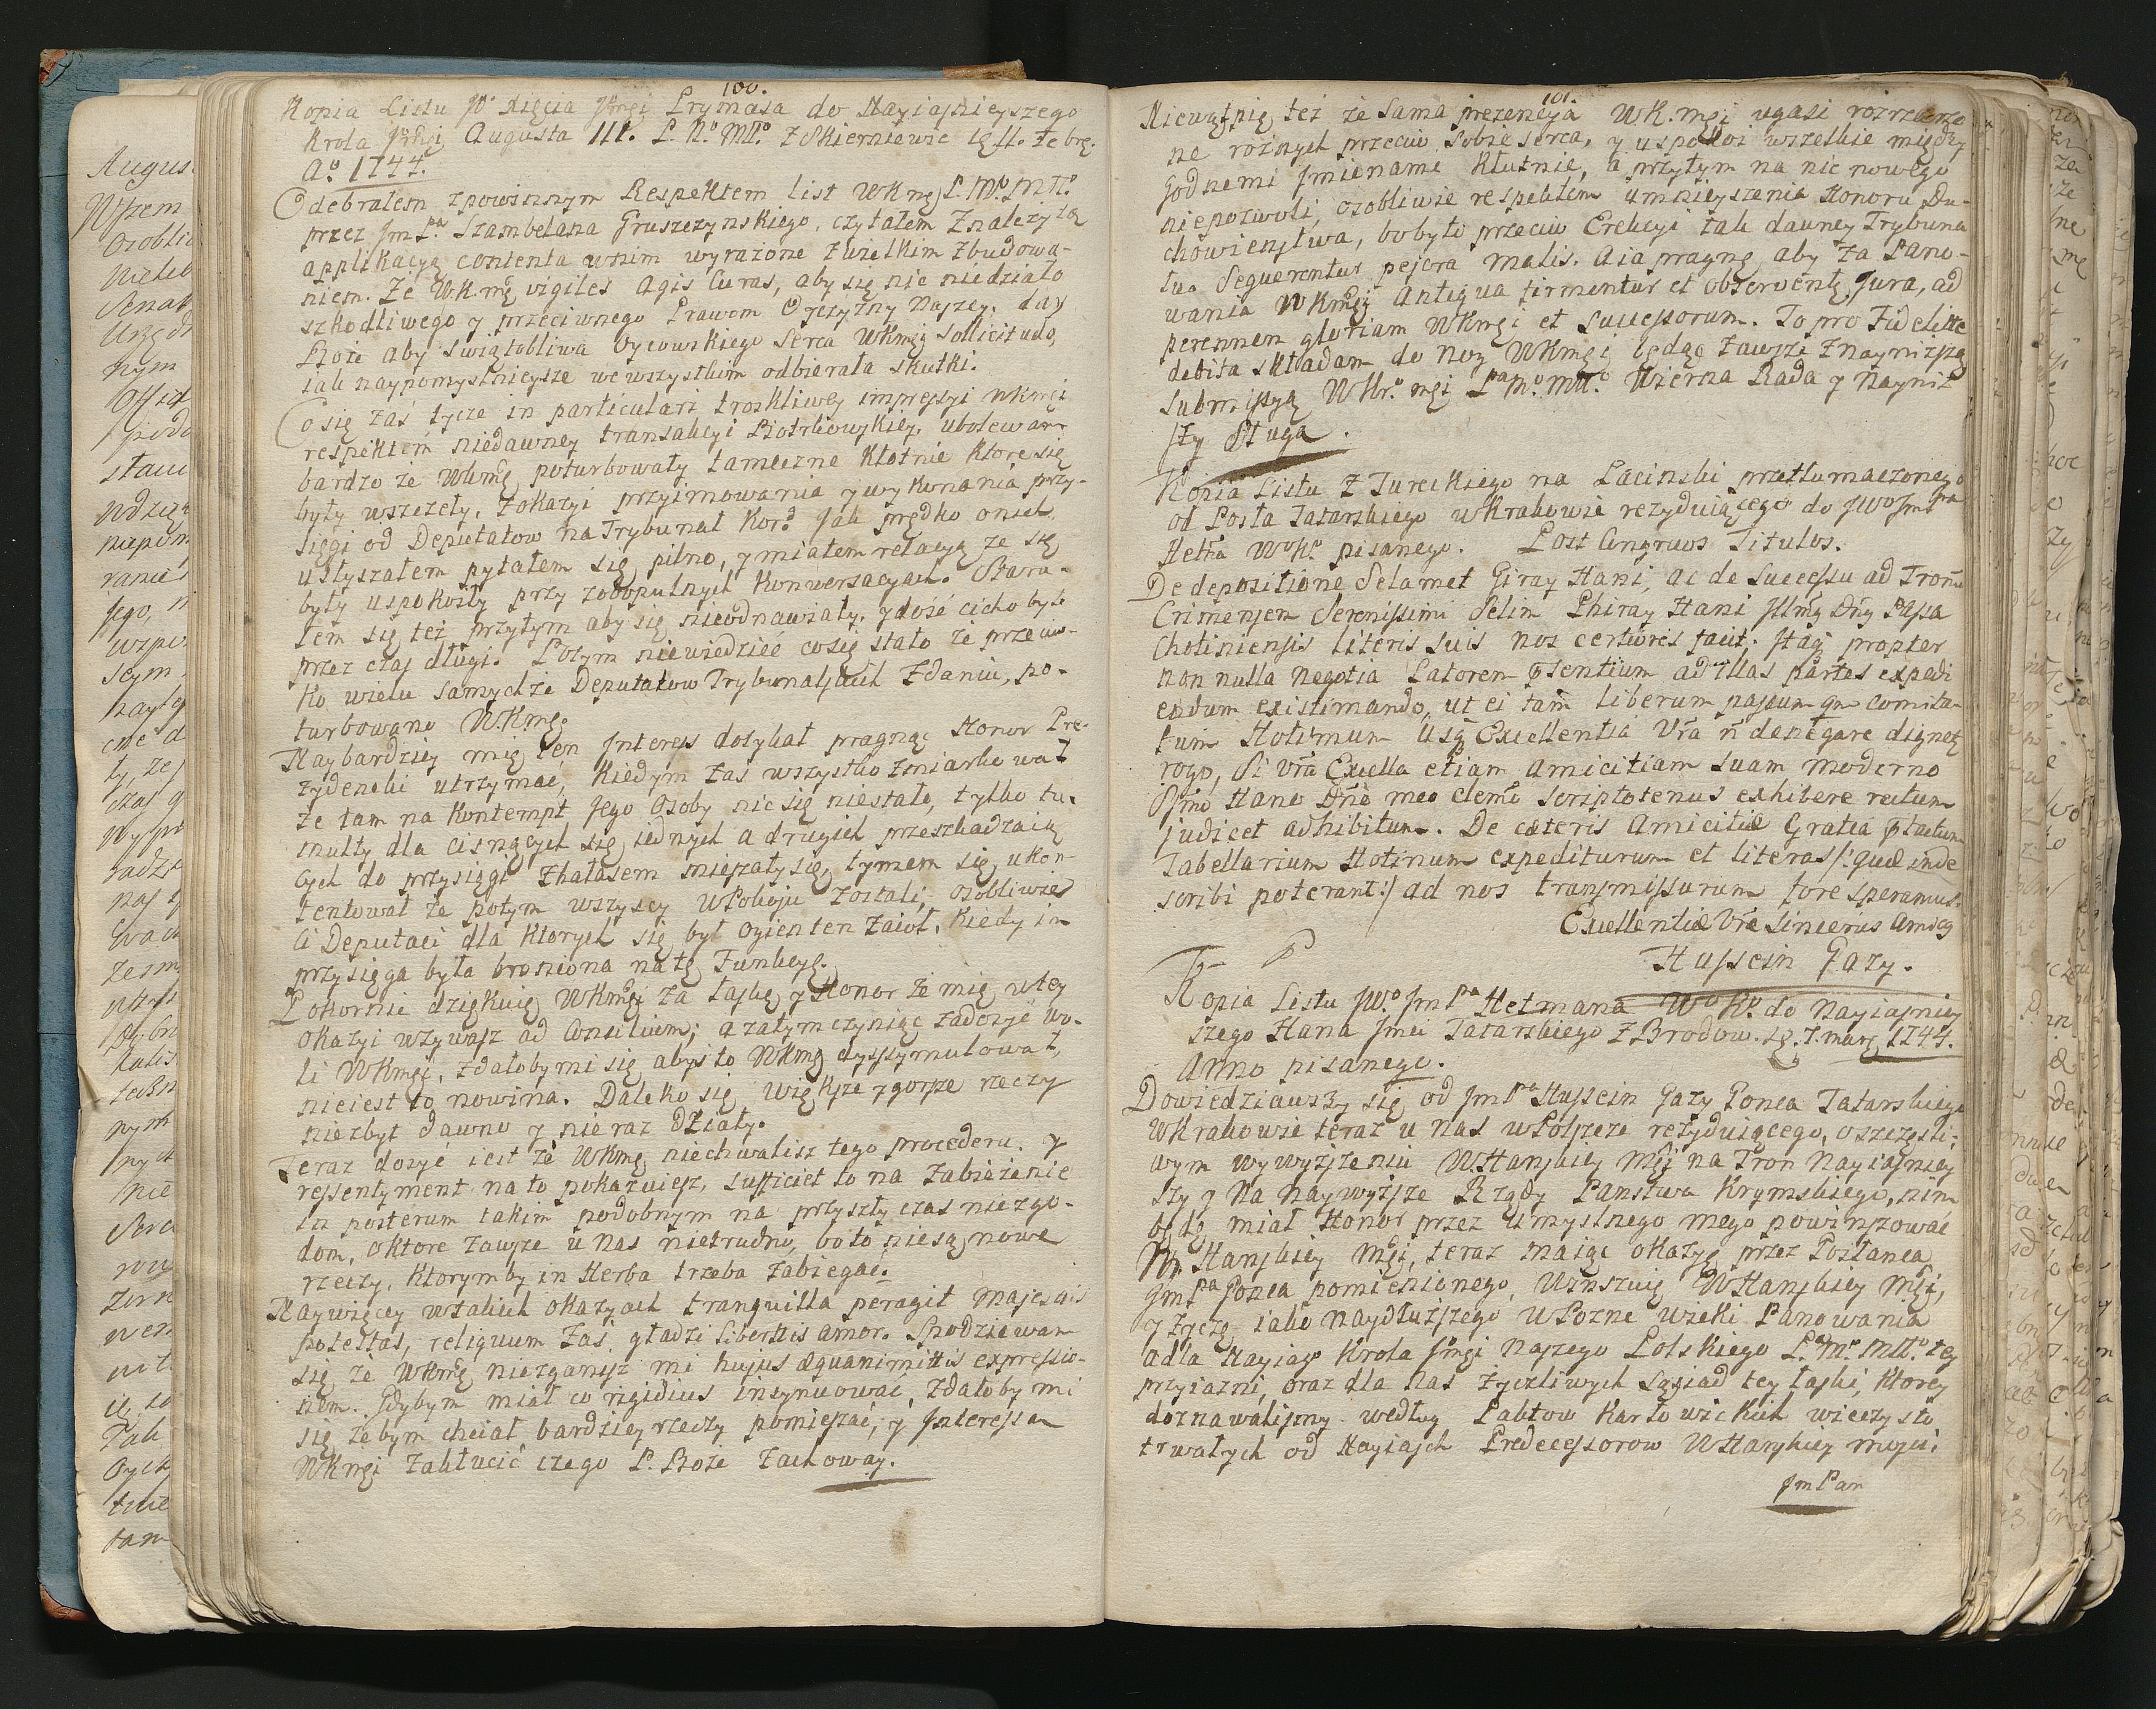 100.
Kopia Listu Jº Xięcia Jmęi Prymasa do Nayiaśnieyszego
Krola Jmęi Augusta III. P. Nº Młº z Skierniewic
Aº 1744.
Odebrałem z powinnym Respektem list WKmę P. Mº Młº
przez Jm Pª Szambelana Gruszczynskiego, czytałem z należytą
applikacyą contenta w nim wyrażone z wielkim zbudowa-
niem. Że W.K.mę vigiles agis curas, aby się nic niedziało
szkodliwego y przeciwnego Prawom Oyczyzny Naszey. day
Boże aby swiątobliwa oycowskiego serca WKmęi sollicitudo,
iak naypomyślnieysze we wszystkim odbierała skutki.
Co się zaś tycze in particulari troskliwey impressyi WKmęi
respektem niedawney transakcyi Piotrkowskiey, ubolewam
bardzo że WKmę poturbowały tameczne kłotnie ktore się
były wszczeły, z okazyi przyimowania y wykonania przy-
sięgi od Deputatow na Trybunał Kor. Jak prędko onich
usłyszałem pytałem się pilno, y miałem relacyą ze się
były uspokoiły przy zoboputnych konwersacyach. Stara-
łem się też przytym aby się nieodnawiały, y dość cicho było
przez czas długi. Potym niewiedzieć co się stało że przeciw-
ko wielu samychże Deputatow Trybunalskich zdaniu, po-
turbowano WKmę
Naybardziey mię ten Interess dotykał pragnąc Honor Pre-
zydencki utrzymać, kiedym zaś wszystko zmiarkował
że tam na kontempt Jego Osoby nic się niestało, tylko tu-
multy dla cisnących się iednych a drugich przeszkadzaią
cych do przysięgi z hałasem mieszały się, tymem się ukon-
tentował że potym wszyscy w Pokoju zostali, osobliwie
Ci Deputaci dla ktorych się był ogień ten zaiął, kiedy im
przysięga była broniona na tę Funkcyę.
Pokornie dziękuię WKmęi za łaskę y Honor że mię w tey
okazyi wzywasz ad Consilium; a zatym czyniąc zadosyć wo-
li WKmęi, zdałobymi się abyś to WKmę dyssymulował,
nieiest to nowina. Daleko się większe y gorsze rzeczy
niezbyt dawno y nie raz Działy.
Teraz dosyć iest że WKmę niechwalisz tego procederu. y
ressentyment na to pokazuiesz, sufficiet to na zabieżenie
in posterum takim podobnym na przyszły czas niezgo-
dom, o ktore zawsze u nas nietrudno, bo to nie są nowe
rzeczy, ktorymby in Herba trzeba zabiegać.
Naywięcey w takich okazyach tranquilla peragit Majestatis
potestas, reliquum zaś gładzi libertatis amor. Spodziewam
się że WKmę nieganisz mi hujus æquanimittis expressio-
nem. Gdybym miał co rigidius insynuować, zdałoby mi
się żebym chciał bardziey rzeczy pomieszać, y Interessa
WKmęi zakłucić czego P. Boże zachoway.
101.
Niewątpię też że sama prezencya WK.męi ugasi rozrzarzo
ne rożnych przeciw sobie serca, y uspokoi wszelkie między
Godnemi Imionami kłutnie, a przytym na nic nowego
niepozwoli, osobliwie respektem umnieyszenia Honoru Du-
chowieństwa, boby to przeciw Erekcyi tak dawney Trybuna
łu. Sequerentur pejora malis. A ia pragnę aby za Pano-
wania WKmęi antiqua firmentur et observentę Jura, ad
perennem gloriam WKmęi et Successorum. To pro Fidelitte
debita składam do nog WKmęi będąc zawsze z nayniższą
submissyą WKr. męi Pª Mº Młº Wierna Rada y Nayniż
szy Sługa.
Kopia Listu z Tureckiego na Łacinski przetłumaczonego
od Posła Tatarskiego w Krakowie rezyduiącego do JWº Jm Pªna
Hetma WºKº pisanego. Post Congruos Titulos.
De depositione Selamet Giray Hani, ac de Successu ad Tronũ
Crimensem Serenissimi Selim Ghiray Hani Illmę Dnę Passa
Chotiniensis literis suis nos certiores facit; Itaq propter
non nulla negotia Latorem Psentium ad illas partes expedi
endum existimando, ut ei tam liberum passum qm comita-
tum Hotimum usq Excellentia Vra ñ denegare dignetę
rogo, Si Vra Exella etiam amicitiam suam moderno
Ssmo Hano Dño meo clemẽ scriptotenus exhibere rectum
judicet adhibitum. De cæteris amicitiæ Gratia Pfactum
Tabellarium Hotinum expediturum et literas /: quæ inde
scribi poterant :/ ad nos transmissurum fore speramus.
Excellentiæ Vræ Sincerus Amicq
Hussein Gazy.
Kopia Listu JWº Jm Pª Hetmana Wº Kº do Nayiaśniey
szego Hana Jmci Tatarskiego z Brodow. 7. marę 1744.
Anno pisanego.
Dowiedziawszy się od Jm Pª Hussein Gazy Gonca Tatarskiego
w Krakowie teraz u nas w Polszcze rezyduiącego, o szczęśli-
wym wywyższeniu WHanskiey Męi na Tron Nayiaśniey
szy y na naywyższe Rządy Panstwa Krymskiego, nim
będę miał Honor przez umyslnego mego powinszować
Hanskiey Męi, teraz maiąc okazyę przez Posłanca
Jm Pª Gonca pomienionego, winszuię WHanskiey Męi,
y życzę iako naydłuższego w Pozne wieki Panowania
a dla Nayiaś Krola Jmęi Naszego Polskiego Pª Mº Młº tey
przyiazni, oraz dla nas życzliwych sąsiad tey łaski, ktorey
doznawaliśmy według Paktow Karłowickich wieczysto
trwałych od Nayiaśch Predecessorow WHanskiey
Jm Pan